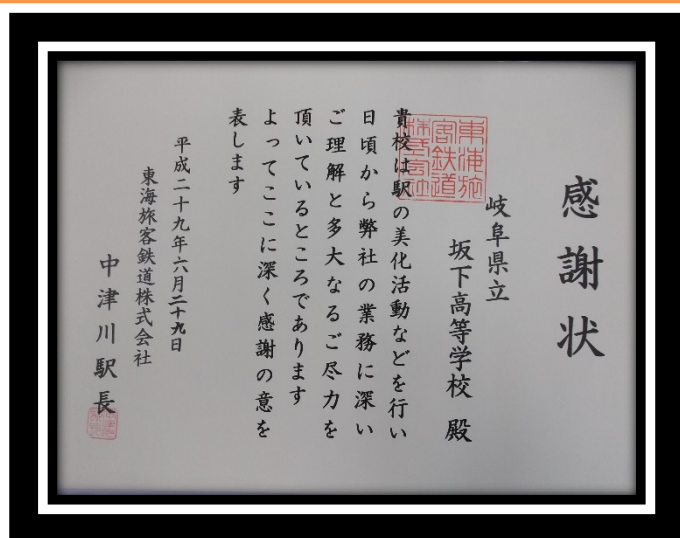 感謝状
岐阜県立
坂下高等学校 殿
貴校は駅の美化活動などを行い
日頃から弊社の業務に深い
ご理解と多大なるご尽力を
頂いているところであります
よってここに深く感謝の意を
表します
平成二十九年六月二十九日
東海旅客鉄道株式会社
中津川駅長
東海旅
客鉄道
株式会社